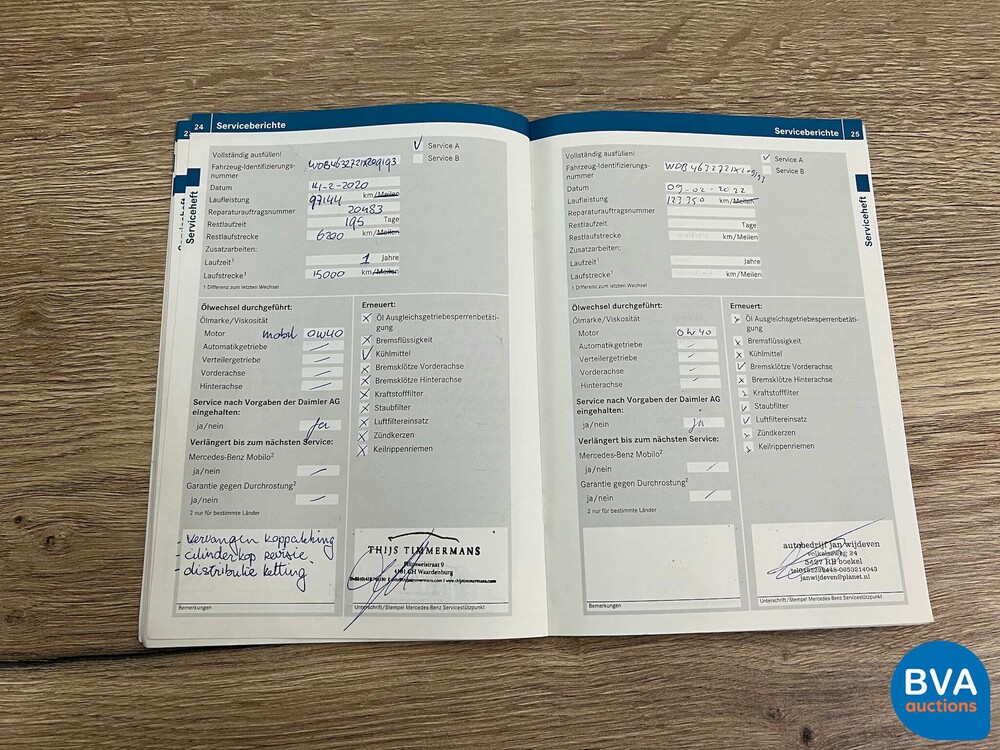 24 Serviceberichte
Vollständig ausfüllen!
Service A
Service B
Fahrzeug-Identifizierungs-
nummer
Datum 14-2-2020
Laufleistung 97144 km/Meilen
Reparaturauftragsnummer 20483
Restlaufzeit 195 Tage
Restlaufstrecke 6200 km/Meilen
Zusatzarbeiten:
Laufzeit¹ 1 Jahre
Laufstrecke¹ 15000 km/Meilen
1 Differenz zum letzten Wechsel
Ölwechsel durchgeführt:
Ölmarke/Viskosität
Motor mobil 0W40
Automatikgetriebe
Verteilergetriebe
Vorderachse
Hinterachse
Service nach Vorgaben der Daimler AG
eingehalten:
ja/nein Ja
Verlängert bis zum nächsten Service:
Mercedes-Benz Mobilo²
ja/nein
Garantie gegen Durchrostung²
ja/nein
2 nur für bestimmte Länder
Erneuert:
Öl Ausgleichsgetriebesperrenbetäti-
gung
Bremsflüssigkeit
Kühlmittel
Bremsklötze Vorderachse
Bremsklötze Hinterachse
Kraftstofffilter
Staubfilter
Luftfiltereinsatz
Zündkerzen
Keilrippenriemen
- vervangen koppakking
- cilinderkop revisie
- distributie ketting
Bemerkungen
THIJS TIMMERMANS
4181 CH Waardenburg
Unterschrift/Stempel Mercedes-Benz Servicestützpunkt
Serviceheft
Serviceberichte 25
Vollständig ausfüllen!
Service A
Service B
Fahrzeug-Identifizierungs-
nummer
Datum 09-02-2022
Laufleistung 123350 km/Meilen
Reparaturauftragsnummer
Restlaufzeit Tage
Restlaufstrecke km/Meilen
Zusatzarbeiten:
Laufzeit¹ Jahre
Laufstrecke¹ km/Meilen
1 Differenz zum letzten Wechsel
Ölwechsel durchgeführt:
Ölmarke/Viskosität
Motor 0W40
Automatikgetriebe
Verteilergetriebe
Vorderachse
Hinterachse
Service nach Vorgaben der Daimler AG
eingehalten:
ja/nein ja
Verlängert bis zum nächsten Service:
Mercedes-Benz Mobilo²
ja/nein
Garantie gegen Durchrostung²
ja/nein
2 nur für bestimmte Länder
Erneuert:
Öl Ausgleichsgetriebesperrenbetäti-
gung
Bremsflüssigkeit
Kühlmittel
Bremsklötze Vorderachse
Bremsklötze Hinterachse
Kraftstofffilter
Staubfilter
Luftfiltereinsatz
Zündkerzen
Keilrippenriemen
Bemerkungen
autobedrijf jan wijdeven
volkelseweg 24
5427 RB boekel
janwijdeven@planet.nl
Unterschrift/Stempel Mercedes-Benz Servicestützpunkt
Serviceheft
BVA
auctions